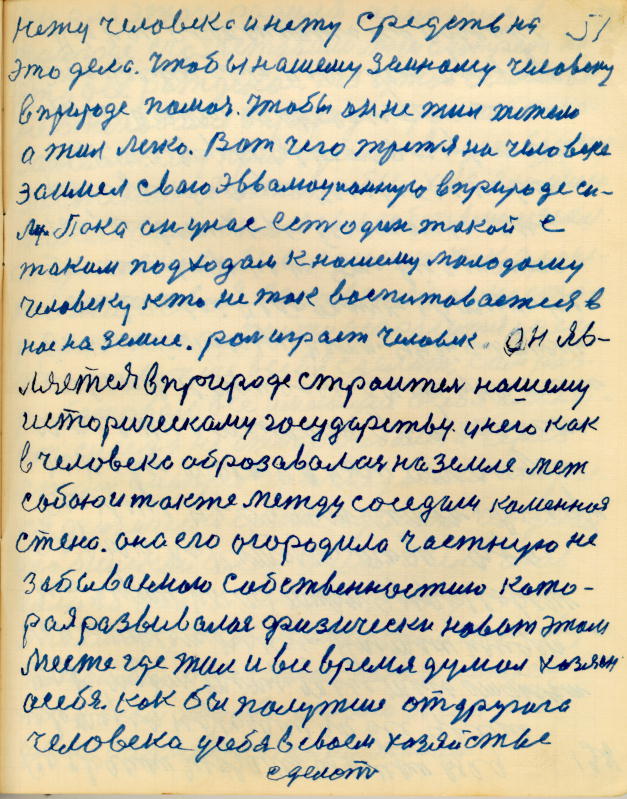 нету человека и нету средств на 51
это дела. Чтобы нашему земному человеку
в природе памоч. Чтобы он не жил тежело
а жил легко. Вот чего третя на человека
заимел сваю эввамоционную в природе си-
лу. Пака он унас есть один такой с
таким подходам к нашему молодому
человеку кто не так воспитовается в
нас на земле. рол играет человек. Он яв-
ляется в природе строител нашему
историческаму государству. у него как
в человека аброзавалася на земле меж
собою и также между соседами каменная
стена. она его огородила частную не
забываемою собственностию като-
рая развивалас физически на вот этом
месте где жил и все время думал хозяен
осебя. как бы получше от другога
человека усебя в своем хозяйстве
сделать